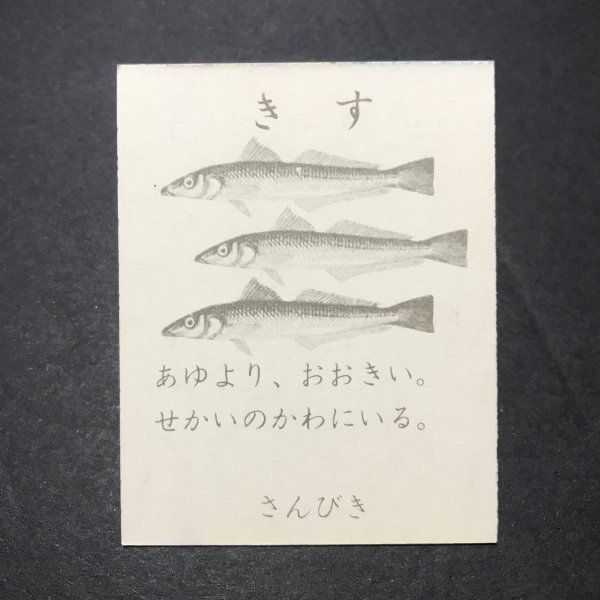 きす
あゆより、おおきい。
せかいのかわにいる。
さんびき